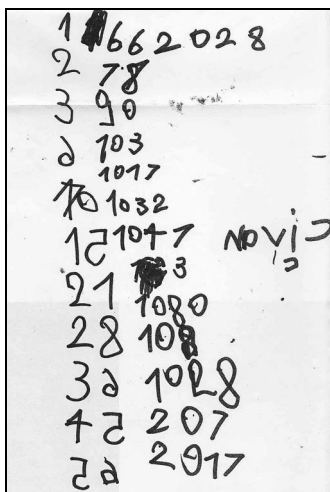 1 1662028
2 78
3 90
6 103
1017
10 1032
15 1047
21 3
1080
28 108
36 1028
45 207
56 2017